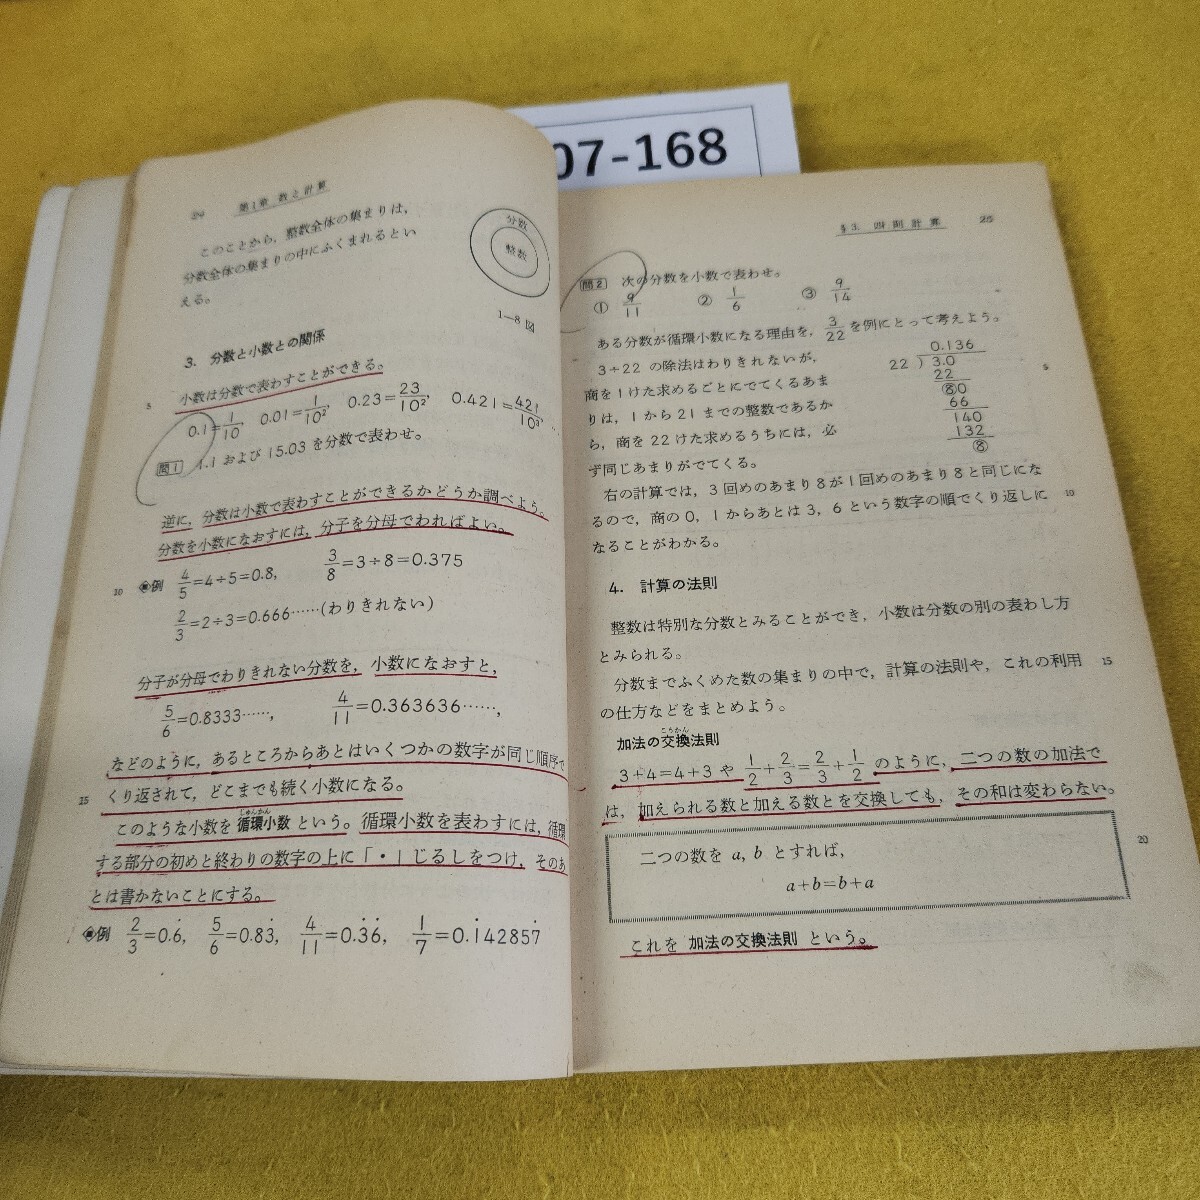 07-168
24 第1章 数と計算
このことから，整数全体の集まりは，
分数全体の集まりの中にふくまれるとい
える。
分数
整数
1—8 図
3. 分数と小数との関係
小数は分数で表わすことができる。
5
0.1=1/10, 0.01=1/10², 0.23=23/10², 0.421=421/10³, …
問1 1.1 および 15.03 を分数で表わせ。
逆に，分数は小数で表わすことができるかどうか調べよう。
分数を小数になおすには，分子を分母でわればよい。
10 例 4/5=4÷5=0.8, 3/8=3÷8=0.375
2/3=2÷3=0.666……(わりきれない)
分子が分母でわりきれない分数を，小数になおすと，
5/6=0.8333……, 4/11=0.363636……,
などのように，あるところからあとはいくつかの数字が同じ順序で
15 くり返されて，どこまでも続く小数になる。
じゅんかん
このような小数を 循環小数 という。循環小数を表わすには，循環
する部分の初めと終わりの数字の上に「・」じるしをつけ，そのあ
とは書かないことにする。
例 2/3=0.6̇, 5/6=0.83̇, 4/11=0.3̇6̇, 1/7=0.1̇42857̇
§3. 四則計算 25
問2 次の分数を小数で表わせ。
① 9/11 ② 1/6 ③ 9/14
ある分数が循環小数になる理由を，3/22 を例にとって考えよう。
3÷22 の除法はわりきれないが，
商を1けた求めるごとにでてくるあま
りは，1から21までの整数であるか
ら，商を22けた求めるうちには，必
ず同じあまりがでてくる。
0.136
22)3.0
5
22
⑧0
66
140
132
⑧
右の計算では，3回めのあまり8が1回めのあまり8と同じにな
るので，商の0，1からあとは3，6という数字の順でくり返しに
10
なることがわかる。
4. 計算の法則
整数は特別な分数とみることができ，小数は分数の別の表わし方
とみられる。
15
分数までふくめた数の集まりの中で，計算の法則や，これの利用
の仕方などをまとめよう。
こうかん
加法の交換法則
3+4=4+3 や 1/2+2/3=2/3+1/2 のように，二つの数の加法で
は，加えられる数と加える数とを交換しても，その和は変わらない。
20
二つの数を a, b とすれば，
a+b=b+a
これを 加法の交換法則 という。